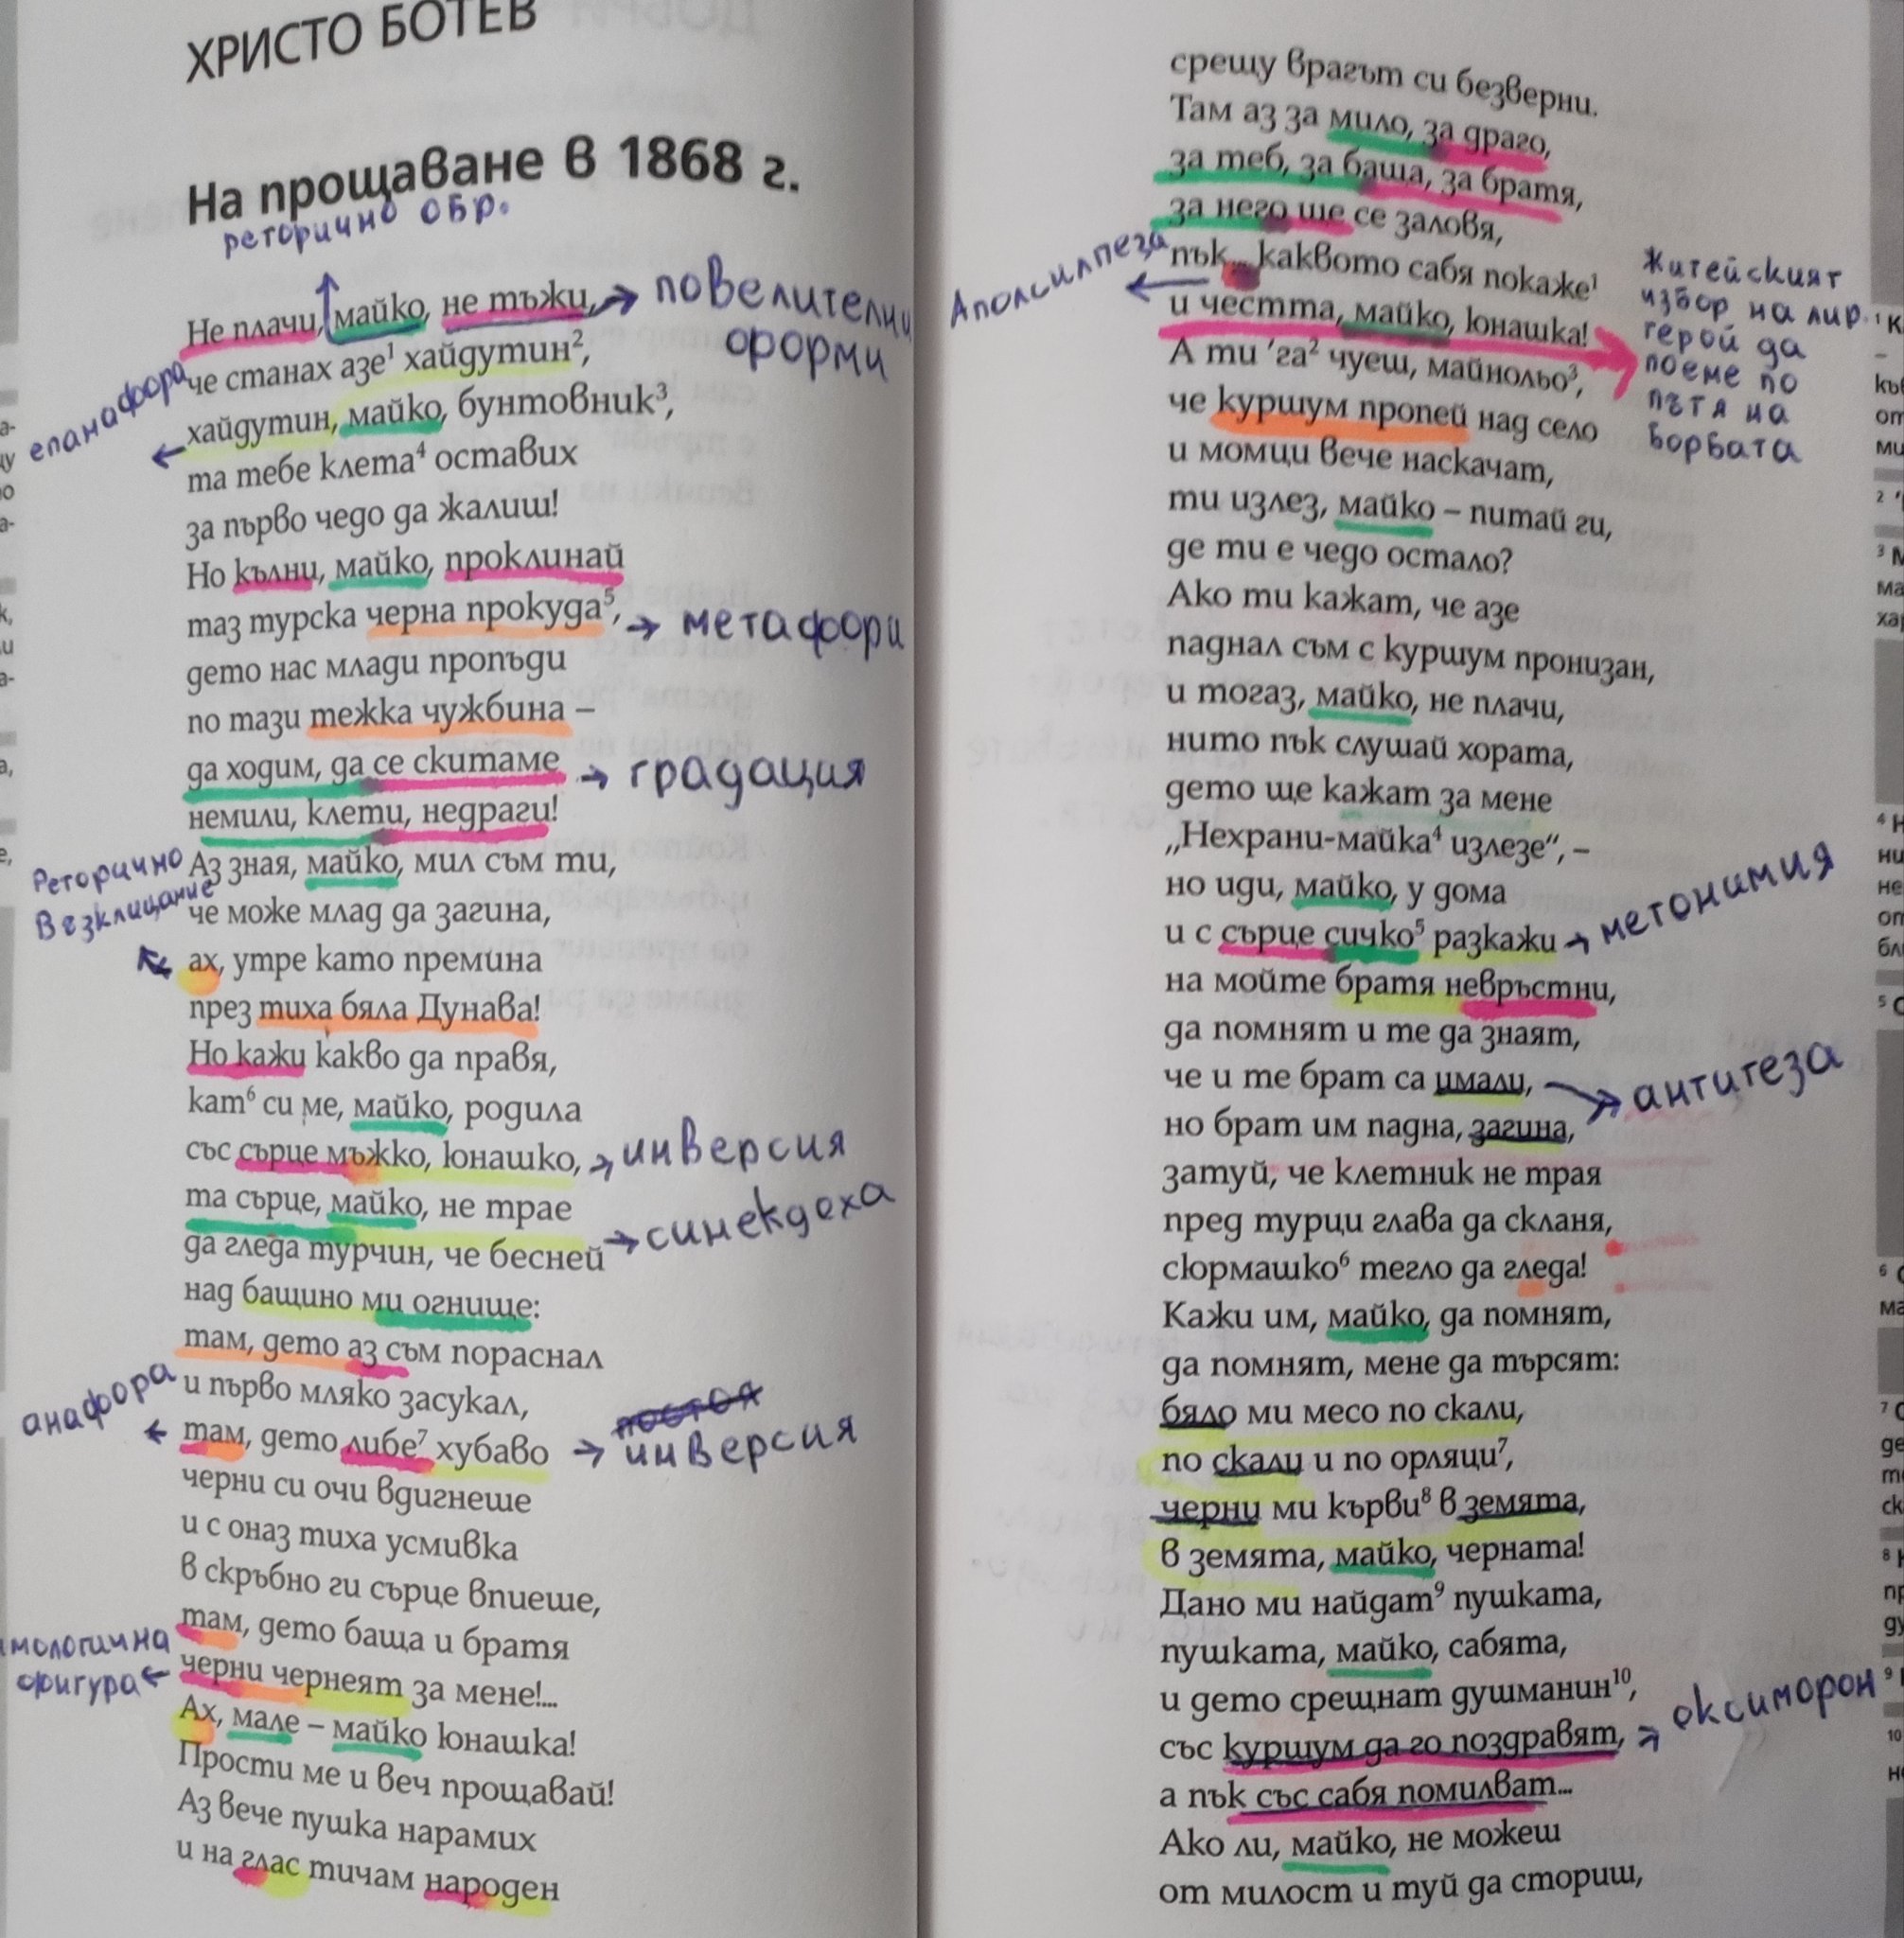 ХРИСТО БОТЕВ
На прощаване в 1868 г.
реторично обр.
Не плачи, майко, не тъжи,
повелителни
форми
че станах азе¹ хайдутин²,
хайдутин, майко, бунтовник³,
епанафора
та тебе клета⁴ оставих
за първо чедо да жалиш!
Но кълни, майко, проклинай
таз турска черна прокуда⁵,
метафори
дето нас млади пропъди
по тази тежка чужбина –
да ходим, да се скитаме
градация
немили, клети, недраги!
Аз зная, майко, мил съм ти,
Реторично
Възклицание
че може млад да загина,
ах, утре като премина
през тиха бяла Дунава!
Но кажи какво да правя,
кат⁶ си ме, майко, родила
със сърце мъжко, юнашко,
инверсия
та сърце, майко, не трае
да гледа турчин, че бесней
синекдоха
над бащино ми огнище:
там, дето аз съм пораснал
и първо мляко засукал,
анафора
там, дето либе⁷ хубаво
инверсия
черни си очи вдигнеше
и с оназ тиха усмивка
в скръбно ги сърце впиеше,
там, дето баща и братя
черни чернеят за мене!...
мологична
фигура
Ах, мале – майко юнашка!
Прости ме и веч прощавай!
Аз вече пушка нарамих
и на глас тичам народен
срещу врагът си безверни.
Там аз за мило, за драго,
за теб, за баща, за братя,
за него ще се заловя,
пък... каквото сабя покаже¹
Апосилпеза
и честта, майко, юнашка!
Житейският
избор на лир.
герой да
поеме по
пътя на
борбата
А ти 'га² чуеш, майнольо³,
че куршум пропей над село
и момци вече наскачат,
ти излез, майко – питай ги,
де ти е чедо остало?
Ако ти кажат, че азе
паднал съм с куршум пронизан,
и тогаз, майко, не плачи,
нито пък слушай хората,
дето ще кажат за мене
„Нехрани-майка⁴ излезе“, –
но иди, майко, у дома
и с сърце сичко⁵ разкажи
метонимия
на мойте братя невръстни,
да помнят и те да знаят,
че и те брат са имали,
антитеза
но брат им падна, загина,
затуй, че клетник не трая
пред турци глава да скланя,
сюрмашко⁶ тегло да гледа!
Кажи им, майко, да помнят,
да помнят, мене да търсят:
бяло ми месо по скали,
по скали и по орляци⁷,
черни ми кърви⁸ в земята,
в земята, майко, черната!
Дано ми найдат⁹ пушката,
пушката, майко, сабята,
и дето срещнат душманин¹⁰,
със куршум да го поздравят,
оксиморон
а пък със сабя помилват...
Ако ли, майко, не можеш
от милост и туй да сториш,